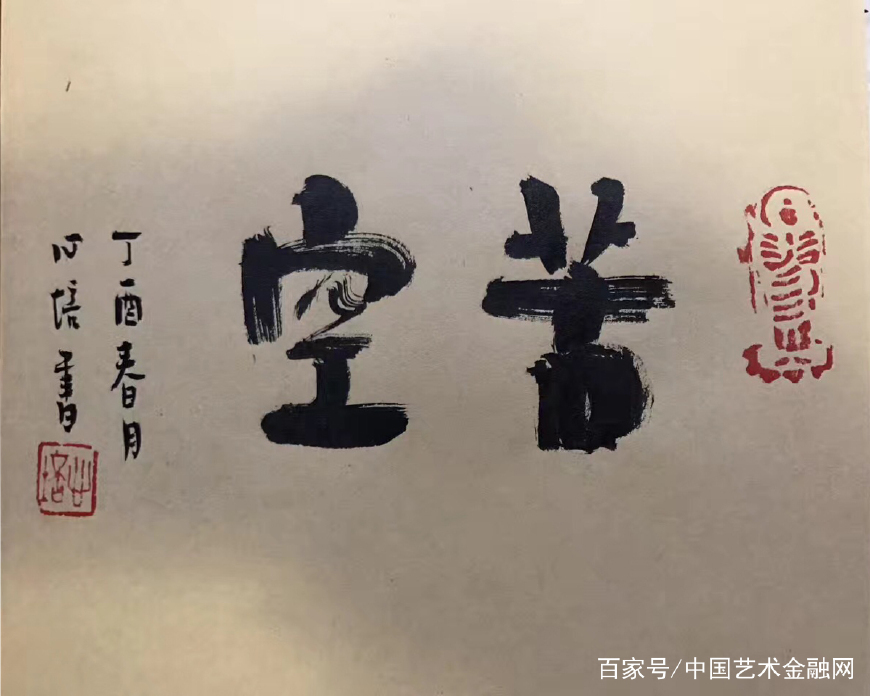 苦空
丁酉春月
心培書
心培
百家号/中国艺术金融网